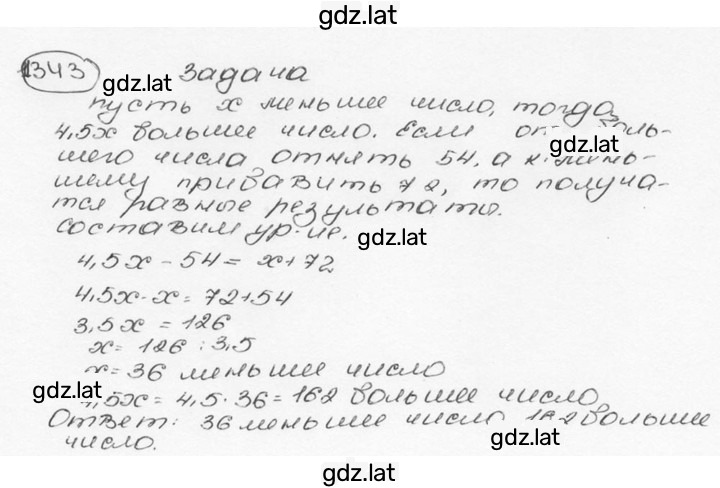 gdz.lat
1343 gdz.lat задача
пусть x меньшее число, тогда
4,5x большее число. Если
gdz.lat
шего числа отнять 54, а к
шему прибавить 72, то получа-
тся равные результаты.
составим ур-ие. gdz.lat
4,5x - 54 = x + 72
4,5x - x = 72 + 54
3,5x = 126
x = 126 : 3,5
x = 36 меньшее число
gdz.lat
4,5x = 4,5 · 36 = 162 большее число
Ответ: 36 меньшее число, 162 большее
gdz.lat
число.
gdz.lat